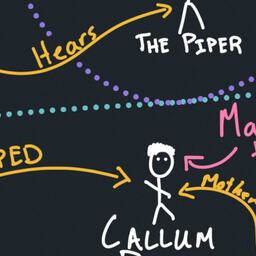 Hears
THE PIPER
Ma
PED
Mother
CALLUM